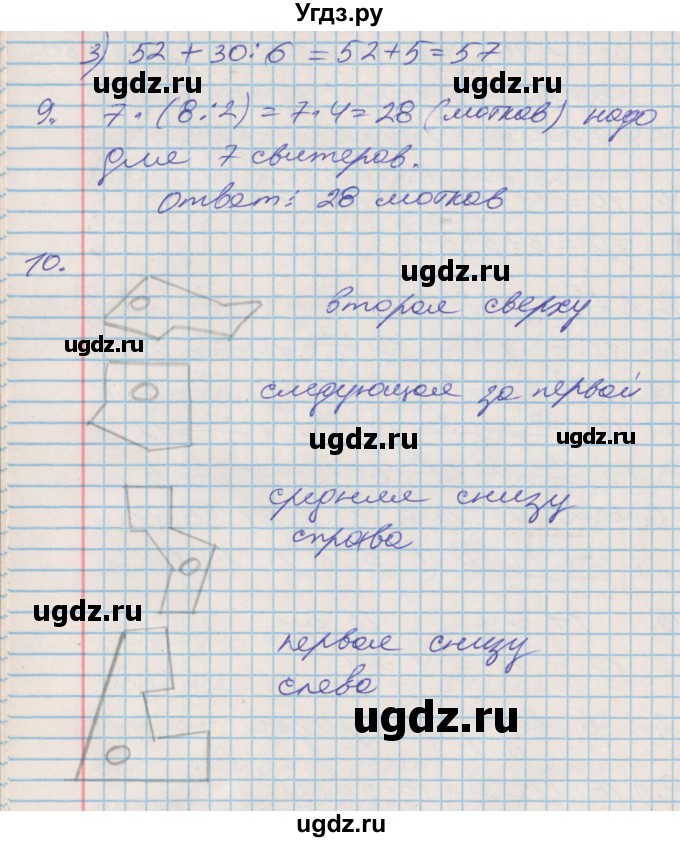 Угдз.ру
3) 52 + 30 : 6 = 52 + 5 = 57
ugdz.ru ugdz.ru
9. 7 · (8 : 2) = 7 · 4 = 28 (мотков) надо
для 7 свитеров.
ответ: 28 мотков
10.
ugdz.ru
вторая сверху
ugdz.ru
следующая за первой
ugdz.ru ugdz.ru
средняя снизу
справа
ugdz.ru
первая снизу
слева
ugdz.ru
ugdz.ru